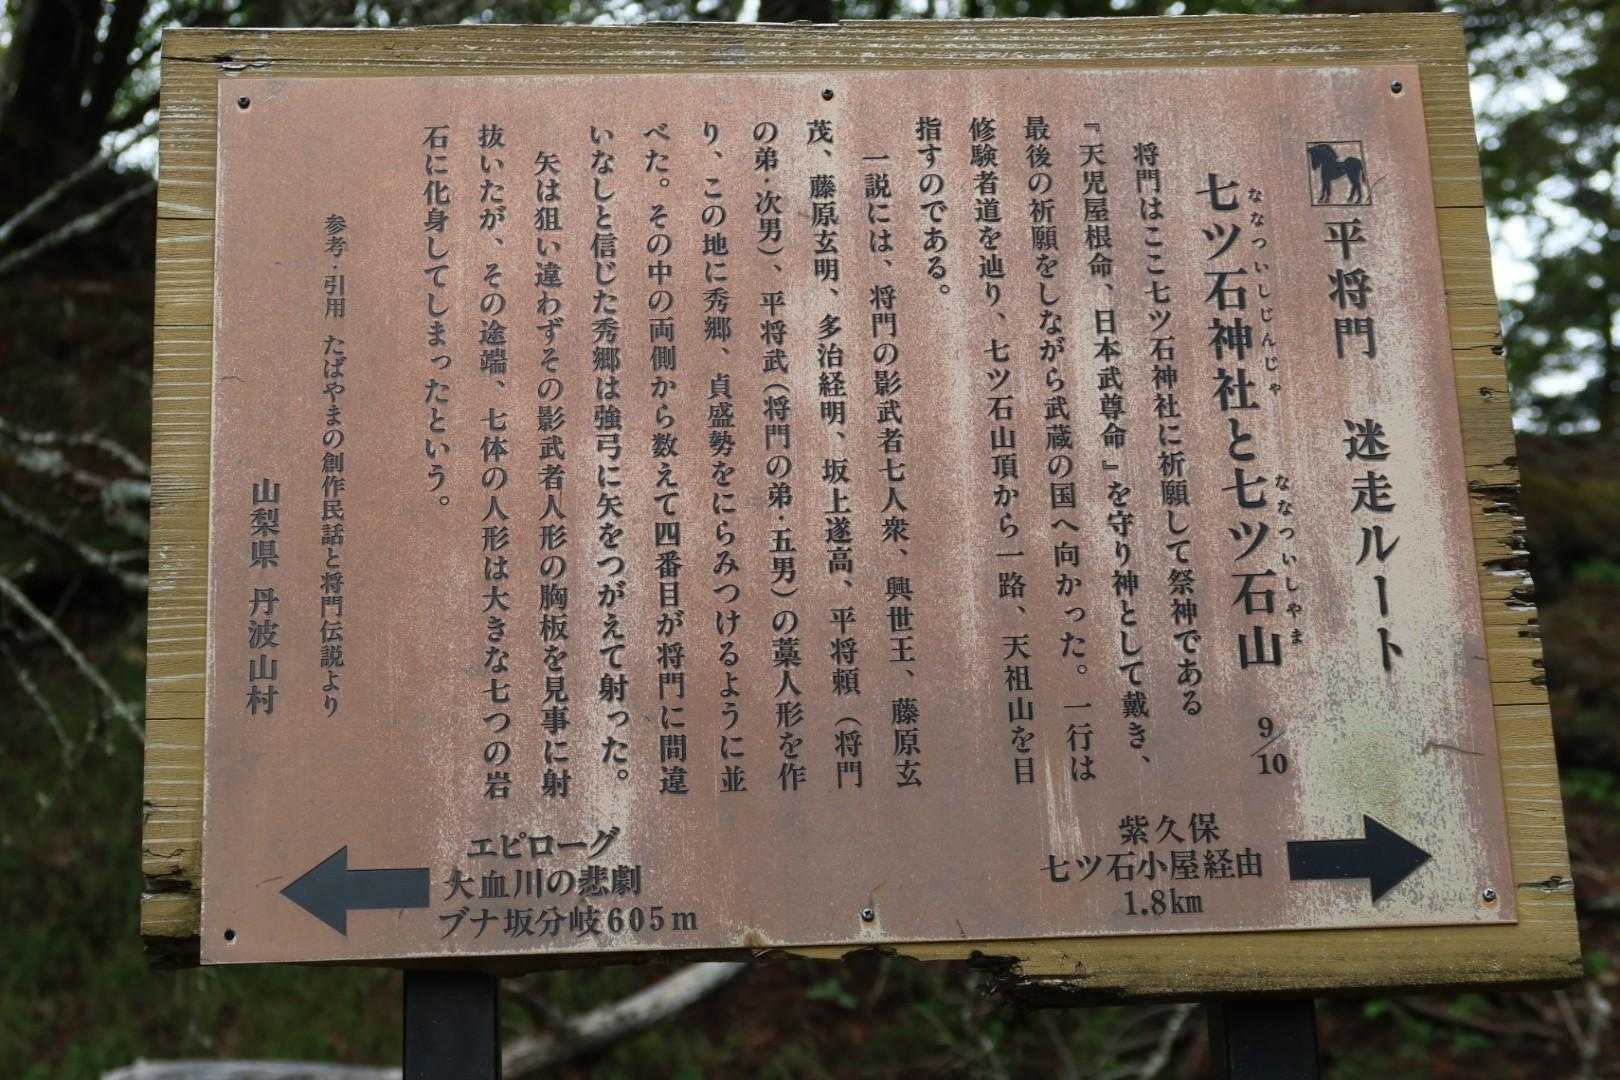 平将門 迷走ルート
七ツ石神社と七ツ石山 9/10
なないついしじんじゃ
なないついしやま
将門はここ七ツ石神社に祈願して祭神である
『天児屋根命、日本武尊命』を守り神として戴き、
最後の祈願をしながら武蔵の国へ向かった。一行は
修験者道を辿り、七ツ石山頂から一路、天祖山を目
指すのである。
一説には、将門の影武者七人衆、興世王、藤原玄
茂、藤原玄明、多治経明、坂上遂高、平将頼（将門
の弟・次男）、平将武（将門の弟・五男）の藁人形を作
り、この地に秀郷、貞盛勢をにらみつけるように並
べた。その中の両側から数えて四番目が将門に間違
いなしと信じた秀郷は強弓に矢をつがえて射った。
矢は狙い違わずその影武者人形の胸板を見事に射
抜いたが、その途端、七体の人形は大きな七つの岩
石に化身してしまったという。
参考・引用 たばやまの創作民話と将門伝説より
山梨県 丹波山村
紫久保
七ツ石小屋経由
1.8km
エピローグ
大血川の悲劇
ブナ坂分岐605m